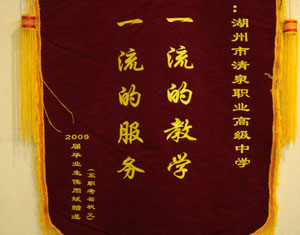 ：湖州市清泉职业高级中学
一流的教学
一流的服务
2009届毕业生侯周斌赠送